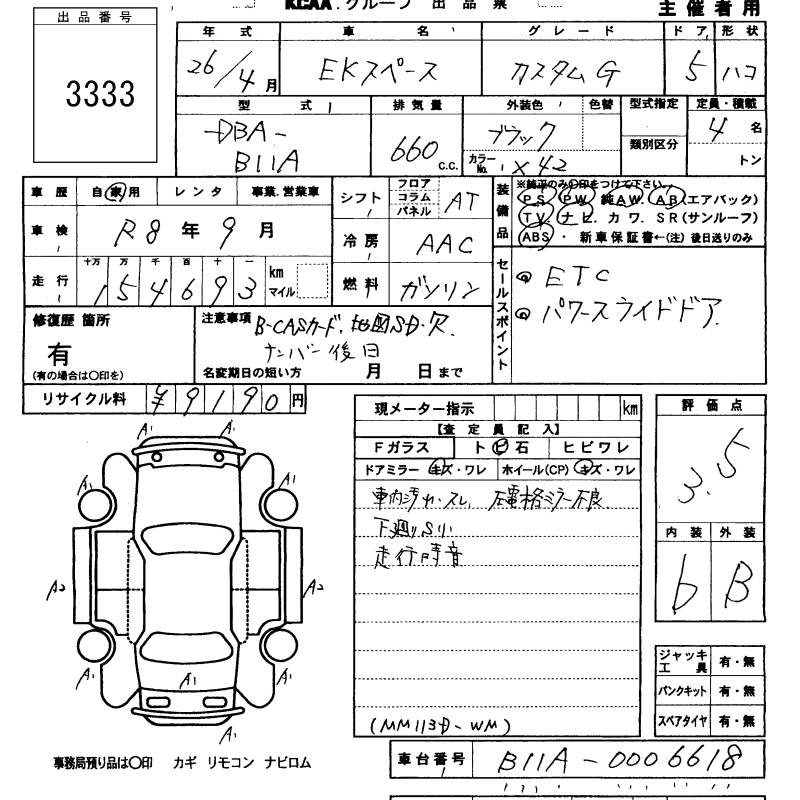 KCAA.グループ 出品票
主催者用
出品番号
3333
年式 車名 グレード ドア 形状
26/4月 EKスペース カスタムG 5 ハコ
型式 排気量 外装色 色替 型式指定 定員・積載
DBA-
B11A
660 c.c.
ブラック
カラーNo. X42
類別区分
4名
トン
車歴 自家用 レンタ 事業.営業車
車検 R8年9月
走行 十万 万 千 百 十 一
154693 km マイル
シフト フロア コラム パネル AT
冷房 AAC
燃料 ガソリン
装備品
※純正のみ○印をつけて下さい。
PS PW 純AW. AB(エアバック)
TV. ナビ. カワ. SR(サンルーフ)
ABS ・ 新車保証書←(注) 後日送りのみ
セールスポイント
◎ ETC
◎ パワースライドドア
修復歴 箇所
有
(有の場合は○印を)
注意事項 B-CASカード,地図SD・欠
ナンバー後日
名変期日の短い方 月 日まで
リサイクル料 ¥9190円
現メーター指示 km
【査定員記入】
Fガラス ト ビ 石 ヒビワレ
ドアミラー キズ・ワレ ホイール(CP) キズ・ワレ
車内汚れ・スレ, 左電格ミラー不良
下廻りSり
走行時音
(MM113D-WM)
評価点
3.5
内装 外装
b B
ジャッキ工具 有・無
パンクキット 有・無
スペアタイヤ 有・無
A1 A1
A1 A1
A2 A2
A1 A1 A1
A1
事務局預り品は○印 カギ リモコン ナビロム
車台番号 B11A-0006618